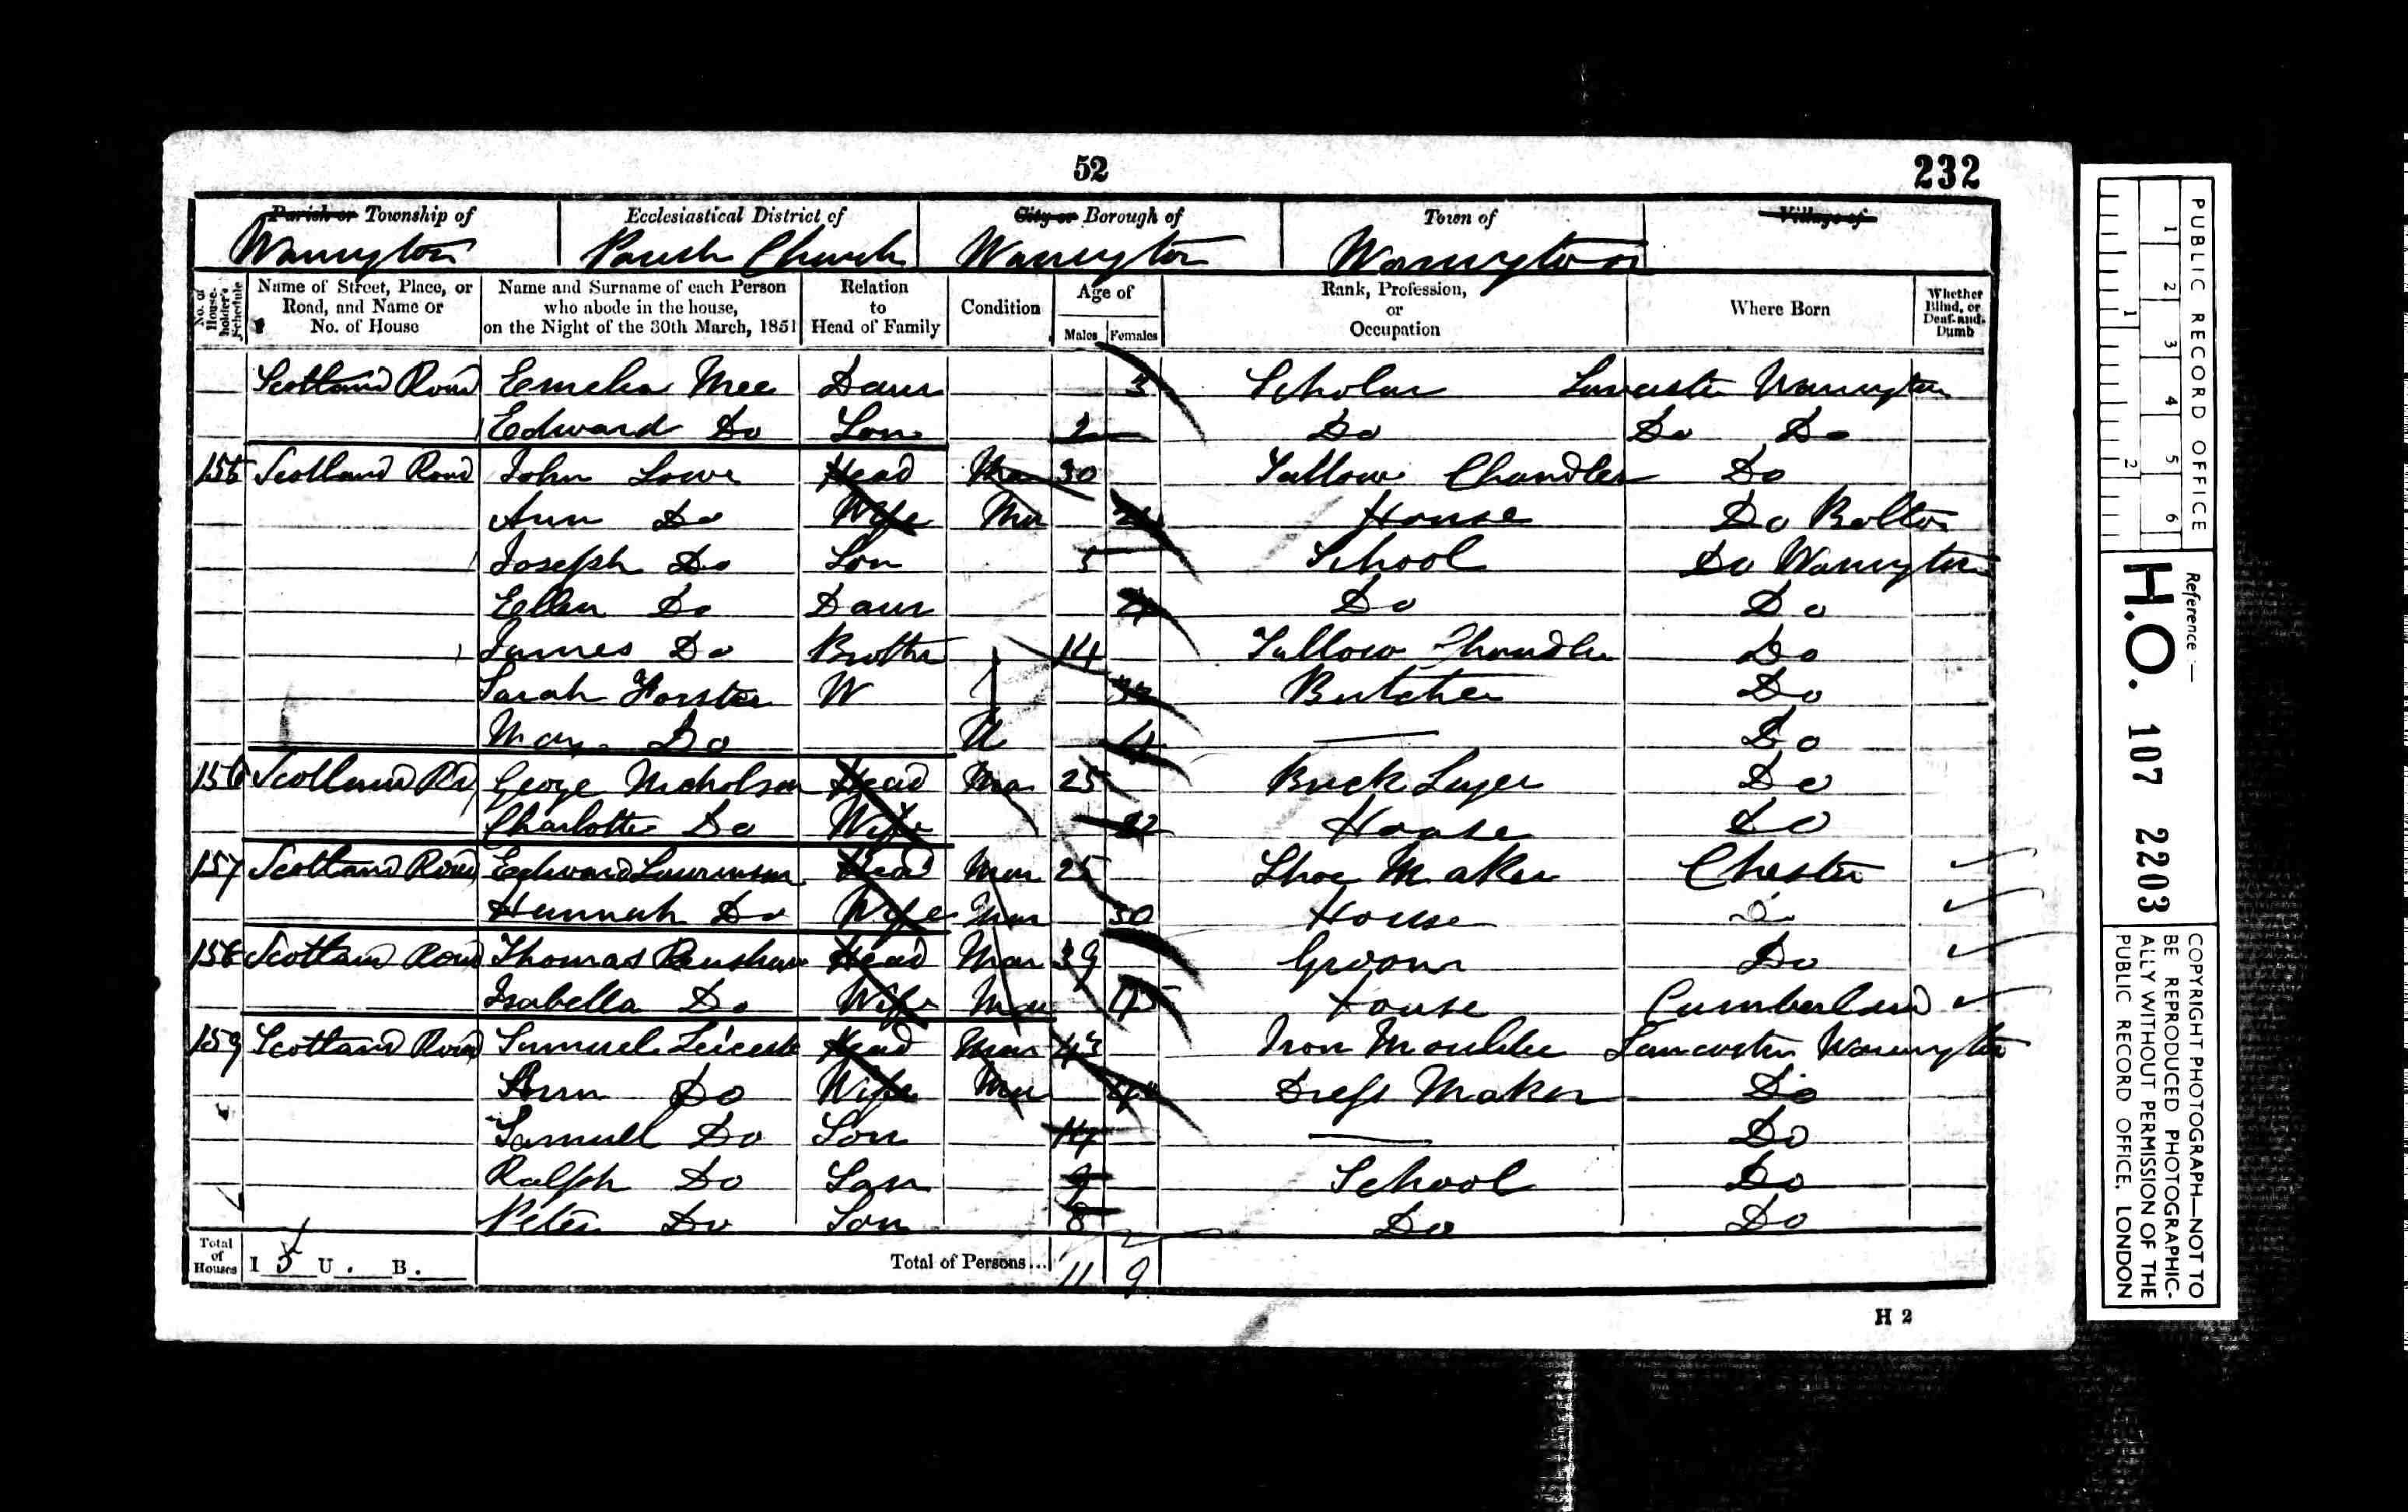 52
232
Parish or Township of Ecclesiastical District of City or Borough of Town of Village of
Warrington Parish Church Warrington Warrington
No. of House-holder's Schedule
Name of Street, Place, or Road, and Name or No. of House
Name and Surname of each Person who abode in the house, on the Night of the 30th March, 1851
Relation to Head of Family
Condition
Age of
Males Females
Rank, Profession, or Occupation
Where Born
Whether Blind, or Deaf-and-Dumb
Scotland Road Emelia Mee Daur 3 Scholar Lancaster Warrington
Edward Do Son 2 Do Do Do
155 Scotland Road John Lowe Head Mar 30 Tallow Chandler Do
Ann Do Wife Mar House Do Bolton
Joseph Do Son 5 School Do Warrington
Ellen Do Daur Do Do
James Do Brother 14 Tallow Chandler Do
Sarah Forster W Butcher Do
Mary Do U Do
156 Scotland Rd George Nicholson Head Mar 25 Brick Layer Do
Charlotte Do Wife 22 House Do
157 Scotland Road Edward Lawrinson Head Mar 25 Shoe Maker Chester
Hannah Do Wife Mar 30 House Do
158 Scotland Road Thomas Renshaw Head Mar 39 Groom Do
Isabella Do Wife Mar 45 House Cumberland
159 Scotland Road Samuel Leicester Head Mar 43 Iron Moulder Lancaster Warrington
Ann Do Wife Mar Dress Maker Do
Samuell Do Son 14 Do
Ralph Do Son 9 School Do
Peter Do Son 8 Do Do
Total of Houses I 5 U . B .
Total of Persons... 11 9
H 2
PUBLIC RECORD OFFICE
1 2 3 4 5 6
1 2
Reference :—
H.O. 107 2203
COPYRIGHT PHOTOGRAPH—NOT TO
BE REPRODUCED PHOTOGRAPHIC-
ALLY WITHOUT PERMISSION OF THE
PUBLIC RECORD OFFICE, LONDON